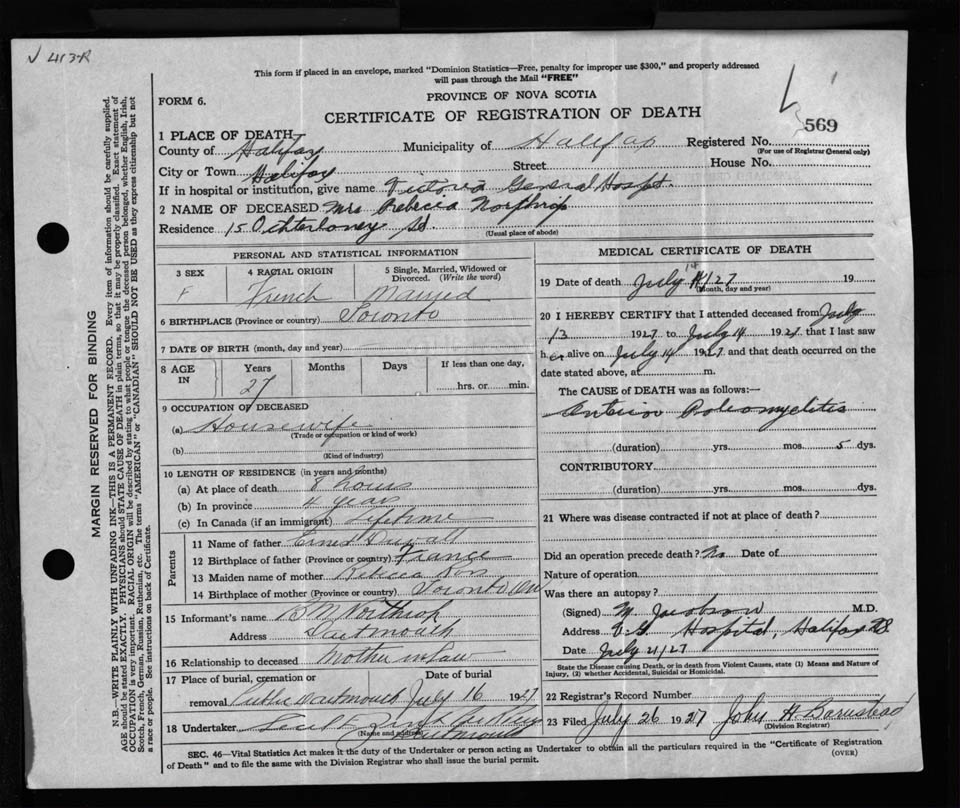 This form if placed in an envelope, marked "Dominion Statistics—Free, penalty for improper use $300," and properly addressed
will pass through the Mail "FREE"
PROVINCE OF NOVA SCOTIA
FORM 6.
CERTIFICATE OF REGISTRATION OF DEATH
569
1 PLACE OF DEATH
County of Halifax Municipality of Halifax Registered No.
(For use of Registrar General only)
City or Town Halifax Street House No.
If in hospital or institution, give name Victoria General Hospt.
2 NAME OF DECEASED Mrs Rebecca Northrup
Residence 15 Ochterloney St.
(Usual place of abode)
PERSONAL AND STATISTICAL INFORMATION
3 SEX 4 RACIAL ORIGIN 5 Single, Married, Widowed or Divorced. (Write the word)
F French Married
6 BIRTHPLACE (Province or country) Toronto
7 DATE OF BIRTH (month, day and year)
8 AGE IN Years Months Days If less than one day,
27 hrs. or min.
9 OCCUPATION OF DECEASED
(a) Housewife
(Trade or occupation or kind of work)
(b)
(Kind of industry)
10 LENGTH OF RESIDENCE (in years and months)
(a) At place of death 8 hours
(b) In province 4 years
(c) In Canada (if an immigrant) Lifetime
Parents
11 Name of father Ernest
12 Birthplace of father (Province or country) France
13 Maiden name of mother Rebecca Ross
14 Birthplace of mother (Province or country) Toronto Ont
15 Informant's name B M Northrup
Address Dartmouth
16 Relationship to deceased Mother in Law
17 Place of burial, cremation or Date of burial
removal Public Dartmouth July 16 1927
18 Undertaker
(Name and address) Dartmouth
MEDICAL CERTIFICATE OF DEATH
19 Date of death July 14/27 19
(Month, day and year)
20 I HEREBY CERTIFY that I attended deceased from July
13 1927 to July 14 1927, that I last saw
her alive on July 14 1927 and that death occurred on the
date stated above, at m.
The CAUSE of DEATH was as follows:—
Anterior Poliomyelitis
(duration) yrs. mos. 5 dys.
CONTRIBUTORY
(duration) yrs. mos. dys.
21 Where was disease contracted if not at place of death?
Did an operation precede death? No Date of
Nature of operation
Was there an autopsy?
(Signed) M. Jacobson M.D.
Address V.G. Hospital, Halifax N.S.
Date July 21/27
State the Disease causing Death, or in death from Violent Causes, state (1) Means and Nature of
Injury, (2) whether Accidental, Suicidal or Homicidal.
22 Registrar's Record Number
23 Filed July 26 1927 John H Barnstead
(Division Registrar)
SEC. 46—Vital Statistics Act makes it the duty of the Undertaker or person acting as Undertaker to obtain all the particulars required in the "Certificate of Registration
of Death" and to file the same with the Division Registrar who shall issue the burial permit.
(OVER)
MARGIN RESERVED FOR BINDING
N.B.—WRITE PLAINLY WITH UNFADING INK—THIS IS A PERMANENT RECORD. Every item of information should be carefully supplied.
AGE should be stated EXACTLY. PHYSICIANS should STATE CAUSE OF DEATH in plain terms, so that it may be properly classified. Exact statement of
OCCUPATION is very important. RACIAL ORIGIN will be described by stating to what people or tongue the deceased person belonged, whether English, Irish,
Scotch, French, German, Russian, Ruthenian, etc. The terms "AMERICAN" or "CANADIAN" SHOULD NOT BE USED as they express citizenship but not
a race or people. See instructions on back of Certificate.